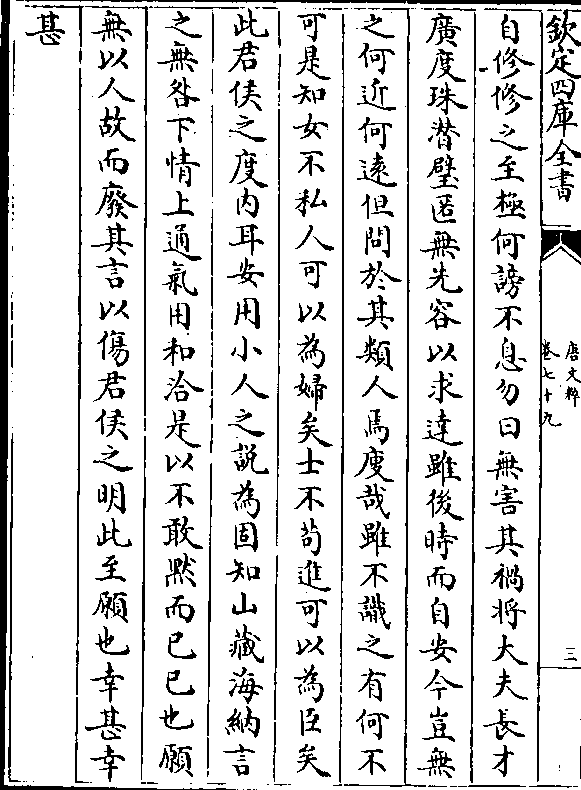 欽定四庫全書
唐文粹
卷七十九
三
自修修之至極何謗不息勿曰無害其禍將大夫長才
廣度珠潛璧匿無先容以求達雖後時而自安今豈無
之何近何遠但問於其類人焉廋哉雖不識之有何不
可是知女不私人可以為婦矣士不苟進可以為臣矣
此君侯之度內耳安用小人之説為固知山藏海納言
之無咎下情上通氣用和洽是以不敢黙而已已也願
無以人故而廢其言以傷君侯之明此至願也幸甚幸
甚